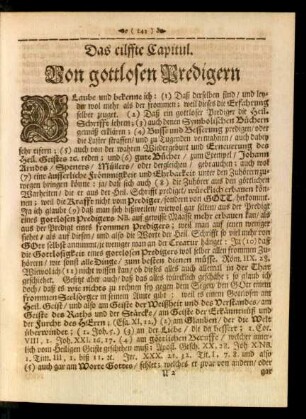 ( 141 )
Das eilffte Capitul.
Von gottlosen Predigern
Glaube und bekenne ich: (1) Daß derselben sind / und ley-
der wol mehr als der frommen; weil dieses die Erfahrung
selber zeuget. (2) Daß ein gottloser Prediger die Heil.
Schrifft lehren / (3) auch denen Symbolischen Büchern
gemäß erklären / (4) Busse und Besserung predigen / oder
die Laster straffen / und zu Tugenden vermahnen / auch dabey
sehr eifern; (5) auch von der wahren Wiedergeburt und Erneuerung des
Heil. Geistes ꝛc. reden / und (6) gute Bücher / zum Exempel / Johann
Arndes / Speners / Müllers / oder dergleichen / gebrauchen / auch wol
(7) eine äusserliche Frömmigkeit und Ehrbarkeit unter den Zuhörern zu-
wegen bringen könne; ja / daß sich auch (8) die Zuhörer aus den göttlichen
Warheiten / die er aus der Heil. Schrifft prediget / würcklich erbauen kön-
nen; weil die Krafft nicht vom Prediger, sondern von GOTT, herkommt.
In ich glaube (9) daß man sich bißweilen / wo nicht allezeit / aus der Predigt
eines gottlosen Predigers NB. auf gewisse Maasse mehr erbauen kan / als
aus der Predigt eines frommen Predigers; weil man auf jenen nicht
siehet / als der es auf seyn / und also die Worte der Heil. Schrifft so viel mehr vor
GOtt selbst annimmt / je weniger man an der Creatur hänget: Ja (10) daß
die Gottlosigkeit eines gottlosen Predigers wol selber allen frommen Zu-
hörern / wie sonst alle Dinge / zum besten dienen müsse. Röm. IIX. 28.
Wiewolich (11) nicht wissen kan / ob dieses alles auch allemal in der That
geschiehet. Gesetzt aber auch / daß das alles würcklich geschähe; so glaub ich
doch / daß es wie nichts zu rechnen sey gegen dem Segen den GOtt einem
frommen Seelsorger in seinem Amte gibt: weil es einem Gottlosen am
Heil. Geist / und also am Geist der Weißheit und des Verstandes / am
Geist des Raths und der Stärcke / am Geist der Erkänntnüß und
der Furcht des HErrn; (Esa. XI, 2.) am Glauben / der die Welt
überwindet; (1. Joh. 5.) am der Liebe / die da bessert; 1. Cor.
VIII, 1. Joh. XXI. 16, 17. (4) am göttlichen Beruffe / welcher inner-
lich vom Heiligen Geiste geschehen muß; Apost. Gesch. XX, 28. Joh. XXI,
1. Tim. III, 1. biß 11. it. Jer. XXX. 21, 32. Tit. I. 7. 8. und also
(5) auch gar am Worte Gottes / fehlet / welches er zwar von andern / oder
U 2 gar